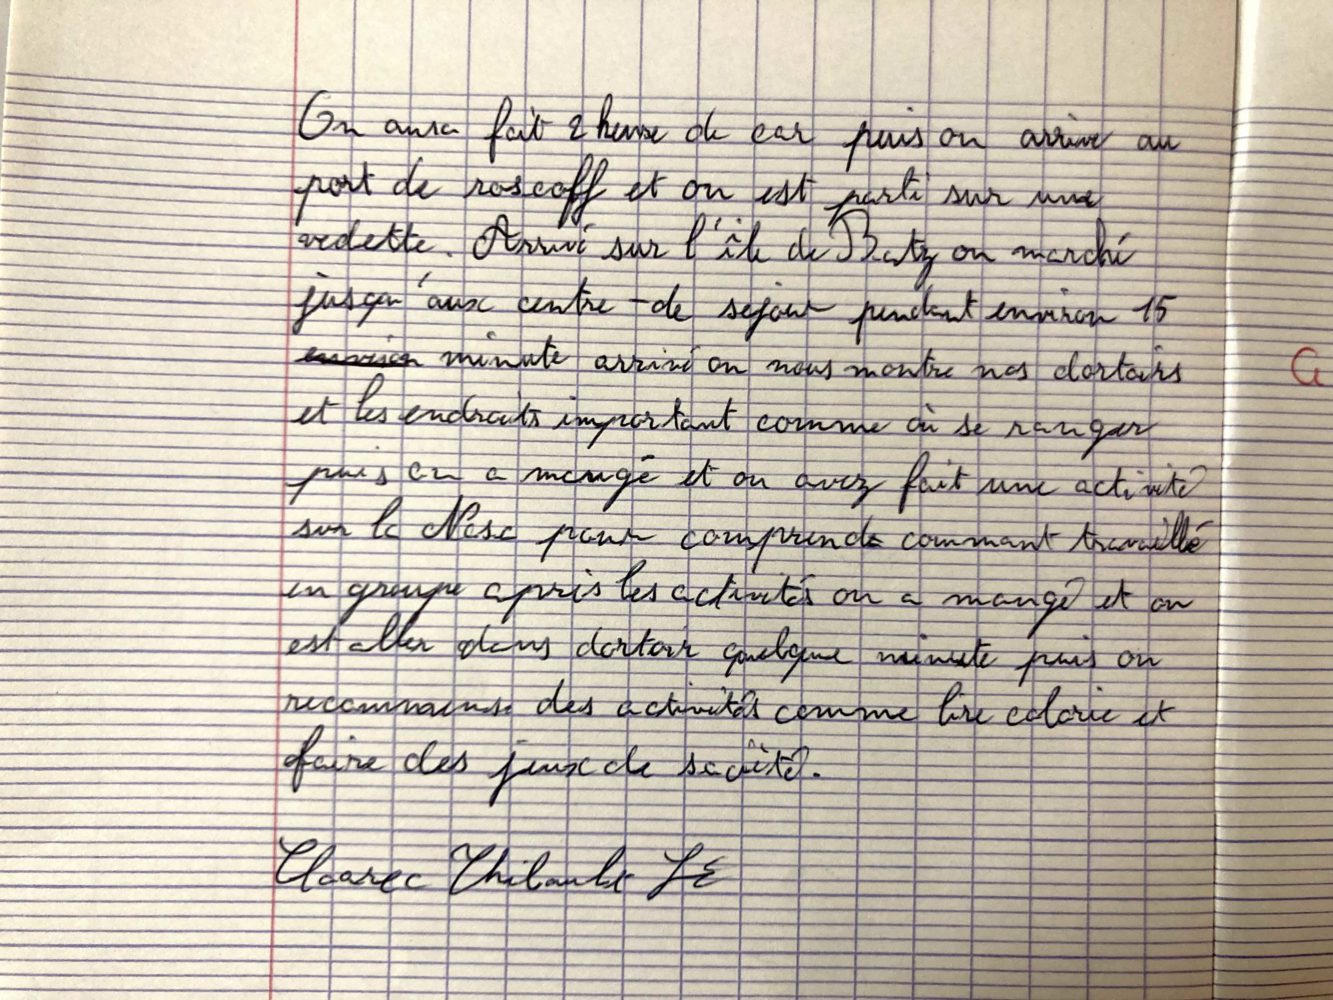 On aura fait 2 heure de car puis on arrive au
port de roscoff et on est parti sur une
vedette. Arrivé sur l'île de Batz on marché
jusqu'aux centre-de sejour pendant environ 15
environ minute arrivé on nous montre nos dortoirs
et les endroits important comme où se ranger
puis on a mangé et on avez fait une activité
sur la Nasa pour comprende commant travaillé
en groupe après les activités on a mangé et on
est aller dans dortoir quelque minute puis on
recommens des activités comme lire colorie et
faire des jeux de sociéte.
Thibault